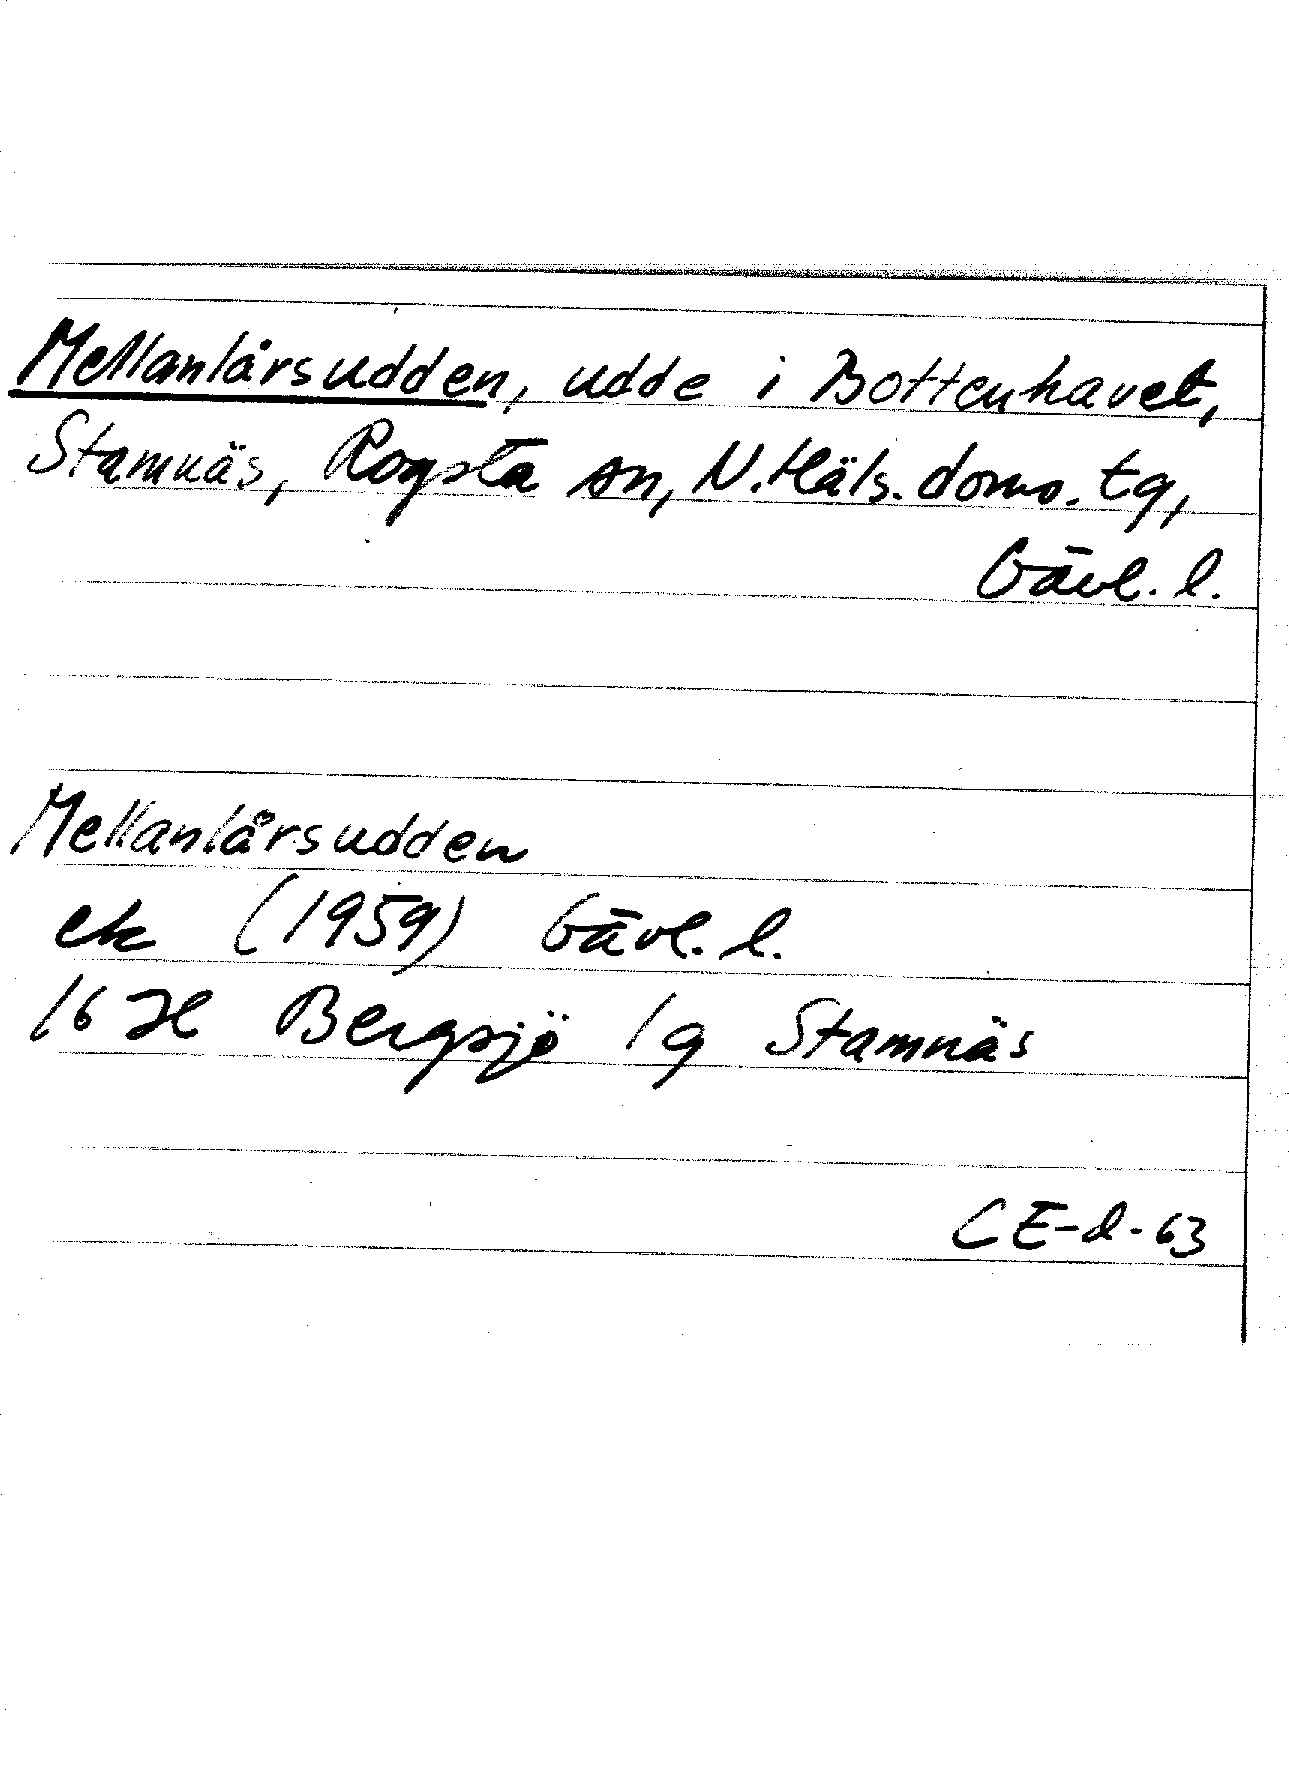 Mellanlårsudden, udde i Bottenhavet,
Stamnäs, Rogsta sn, N. Häls. doms. tg,
Gävl. l.
Mellanlårsudden
ek (1959) Gävl. l.
16 H Bergsjö 1g Stamnäs
CE-d-63